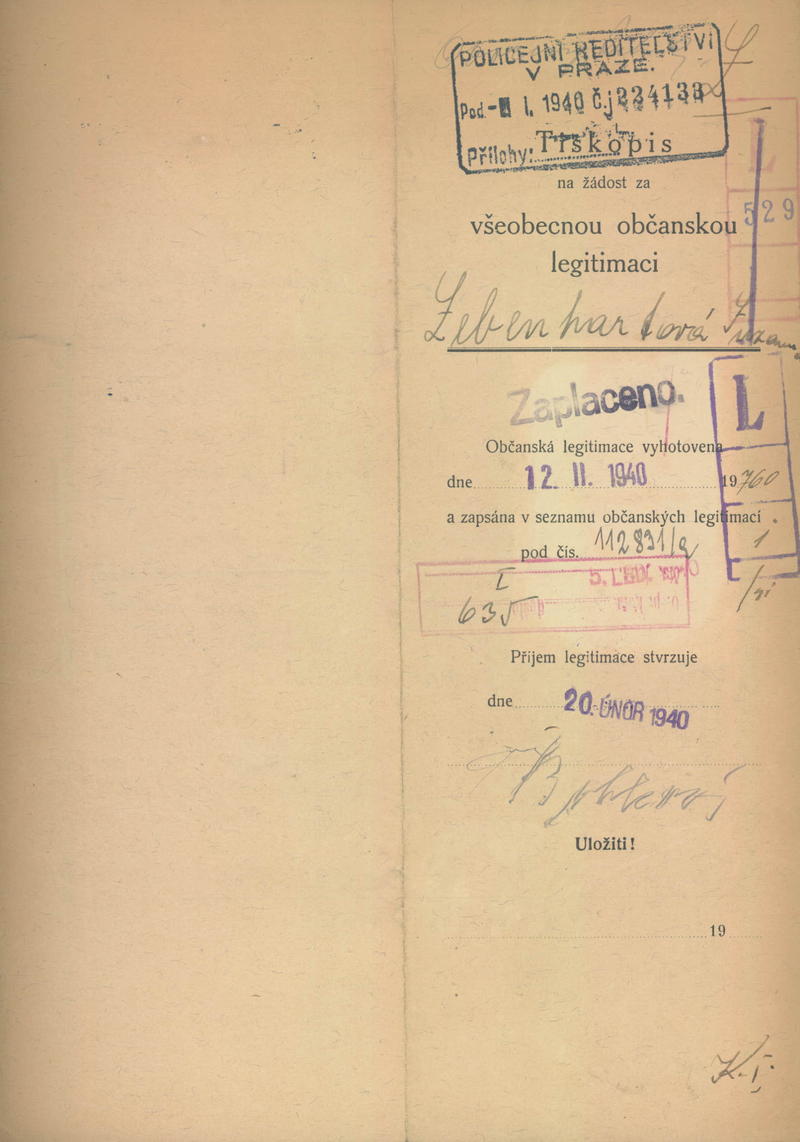 POLICEJNÍ ŘEDITELSTVÍ
V PRAZE.
Pod. I. 1940 Č.j.
Přílohy: Tiskopis
na žádost za
všeobecnou občanskou
529
legitimaci
Lebenhartová Zuzana
Zaplaceno.
L
Občanská legitimace vyhotovena
dne 12. II. 1940 19
760
a zapsána v seznamu občanských legitimací
pod čís. 112831/q
1
I
5. LED. 1940
635
Příjem legitimace stvrzuje
dne 20. ÚNOR 1940
Uložiti!
19
K.I.